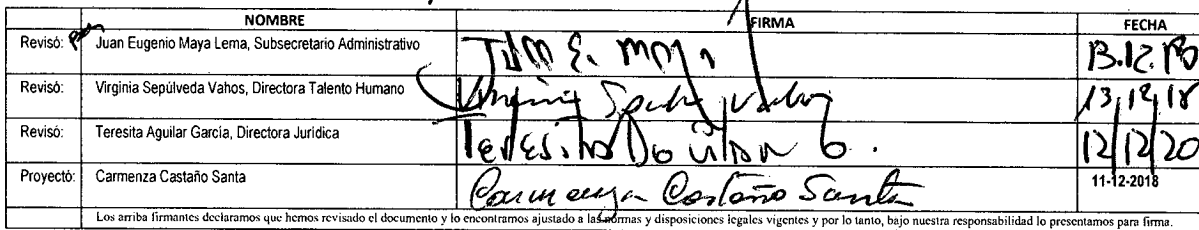 NOMBRE FIRMA FECHA
Revisó: Juan Eugenio Maya Lema, Subsecretario Administrativo Juan E. Maya 13.12.18
Revisó: Virginia Sepúlveda Vahos, Directora Talento Humano Virginia Sepulveda Vahos 13/12/18
Revisó: Teresita Aguilar García, Directora Jurídica Teresita Aguilar G. 12/12/20
Proyectó: Carmenza Castaño Santa Carmenza Castaño Santa 11-12-2018
Los arriba firmantes declaramos que hemos revisado el documento y lo encontramos ajustado a las normas y disposiciones legales vigentes y por lo tanto, bajo nuestra responsabilidad lo presentamos para firma.